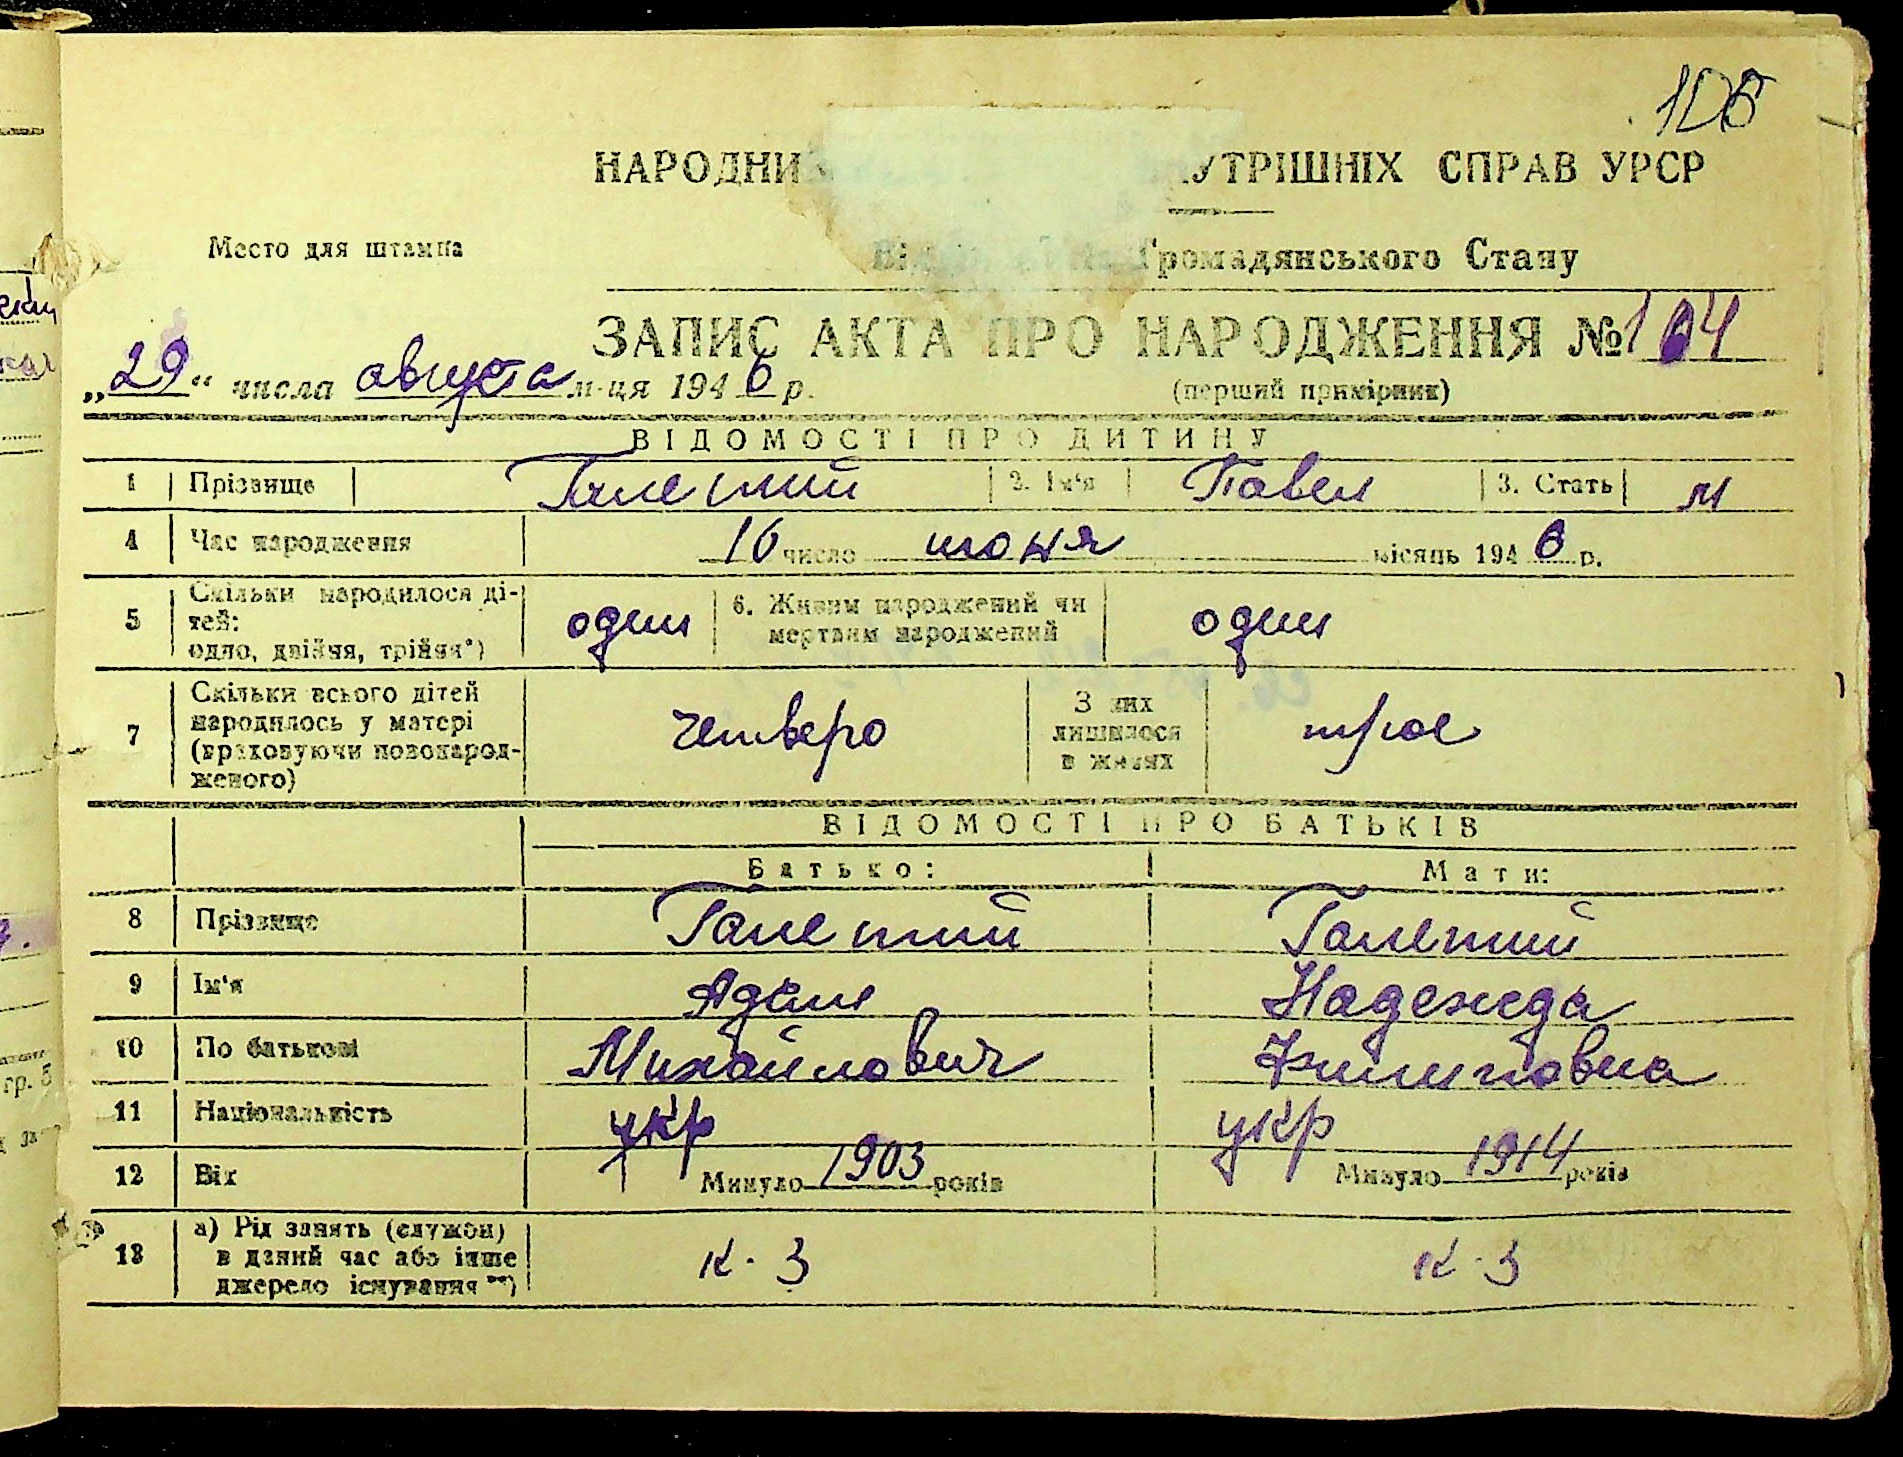 106
НАРОДНИ УТРІШНІХ СПРАВ УРСР
Место для штампа
Ві Громадянського Стану
ЗАПИС АКТА ПРО НАРОДЖЕННЯ № 104
„29“ числа августа м-ця 1946 р.
(перший примірник)
ВІДОМОСТІ ПРО ДИТИНУ
1 Прізвище Галетий 2. Ім'я Павел 3. Стать м
4 Час народження 16 число июня місяць 1946 р.
5 Скільки народилося ді-
тей:
одно, двійня, трійня*) один 6. Живим народжений чи
мертвим народжений один
7 Скільки всього дітей
народилось у матері
(враховуючи новонарод-
женого) четверо З них
лишилося
в живих трое
ВІДОМОСТІ ПРО БАТЬКІВ
Батько: Мати:
8 Прізвище Галетий Галетий
9 Ім'я Адам Надежда
10 По батькові Михайлович Филиповна
11 Національність укр укр
12 Вік Минуло 1903 років Минуло 1914 років
13 а) Рід занять (служби)
в даний час або інше
джерело існування **) к-з к-з
гр. 5